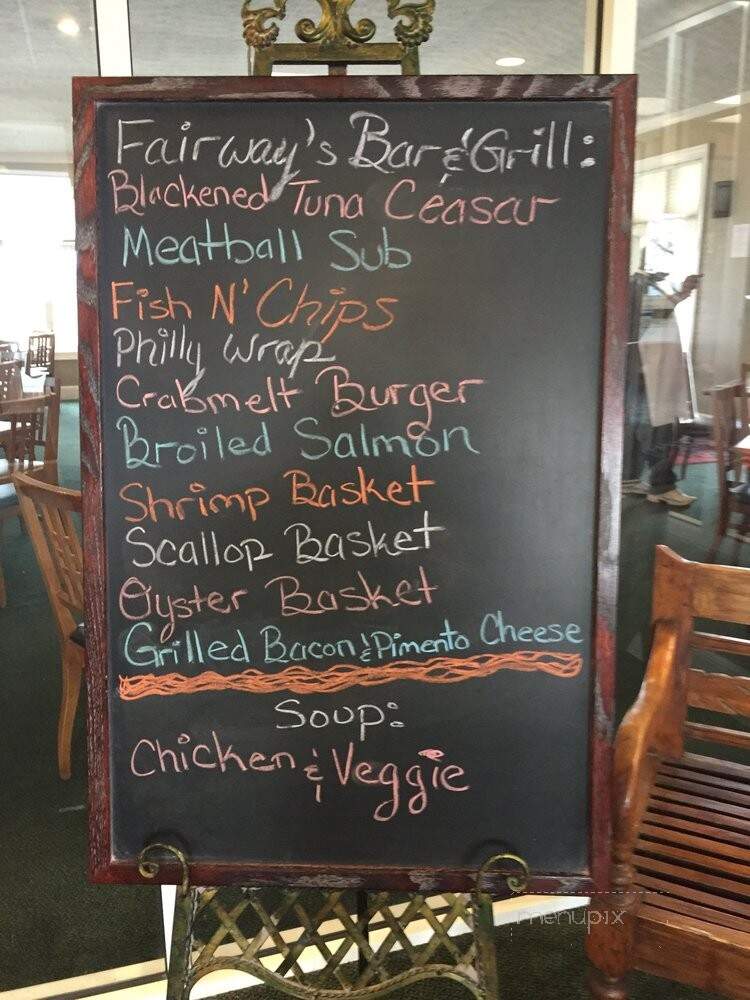 Fairway's Bar & Grill:
Blackened Tuna Ceasar
Meatball Sub
Fish N' Chips
Philly Wrap
Crabmelt Burger
Broiled Salmon
Shrimp Basket
Scallop Basket
Oyster Basket
Grilled Bacon & Pimento Cheese
Soup:
Chicken & Veggie
menupix